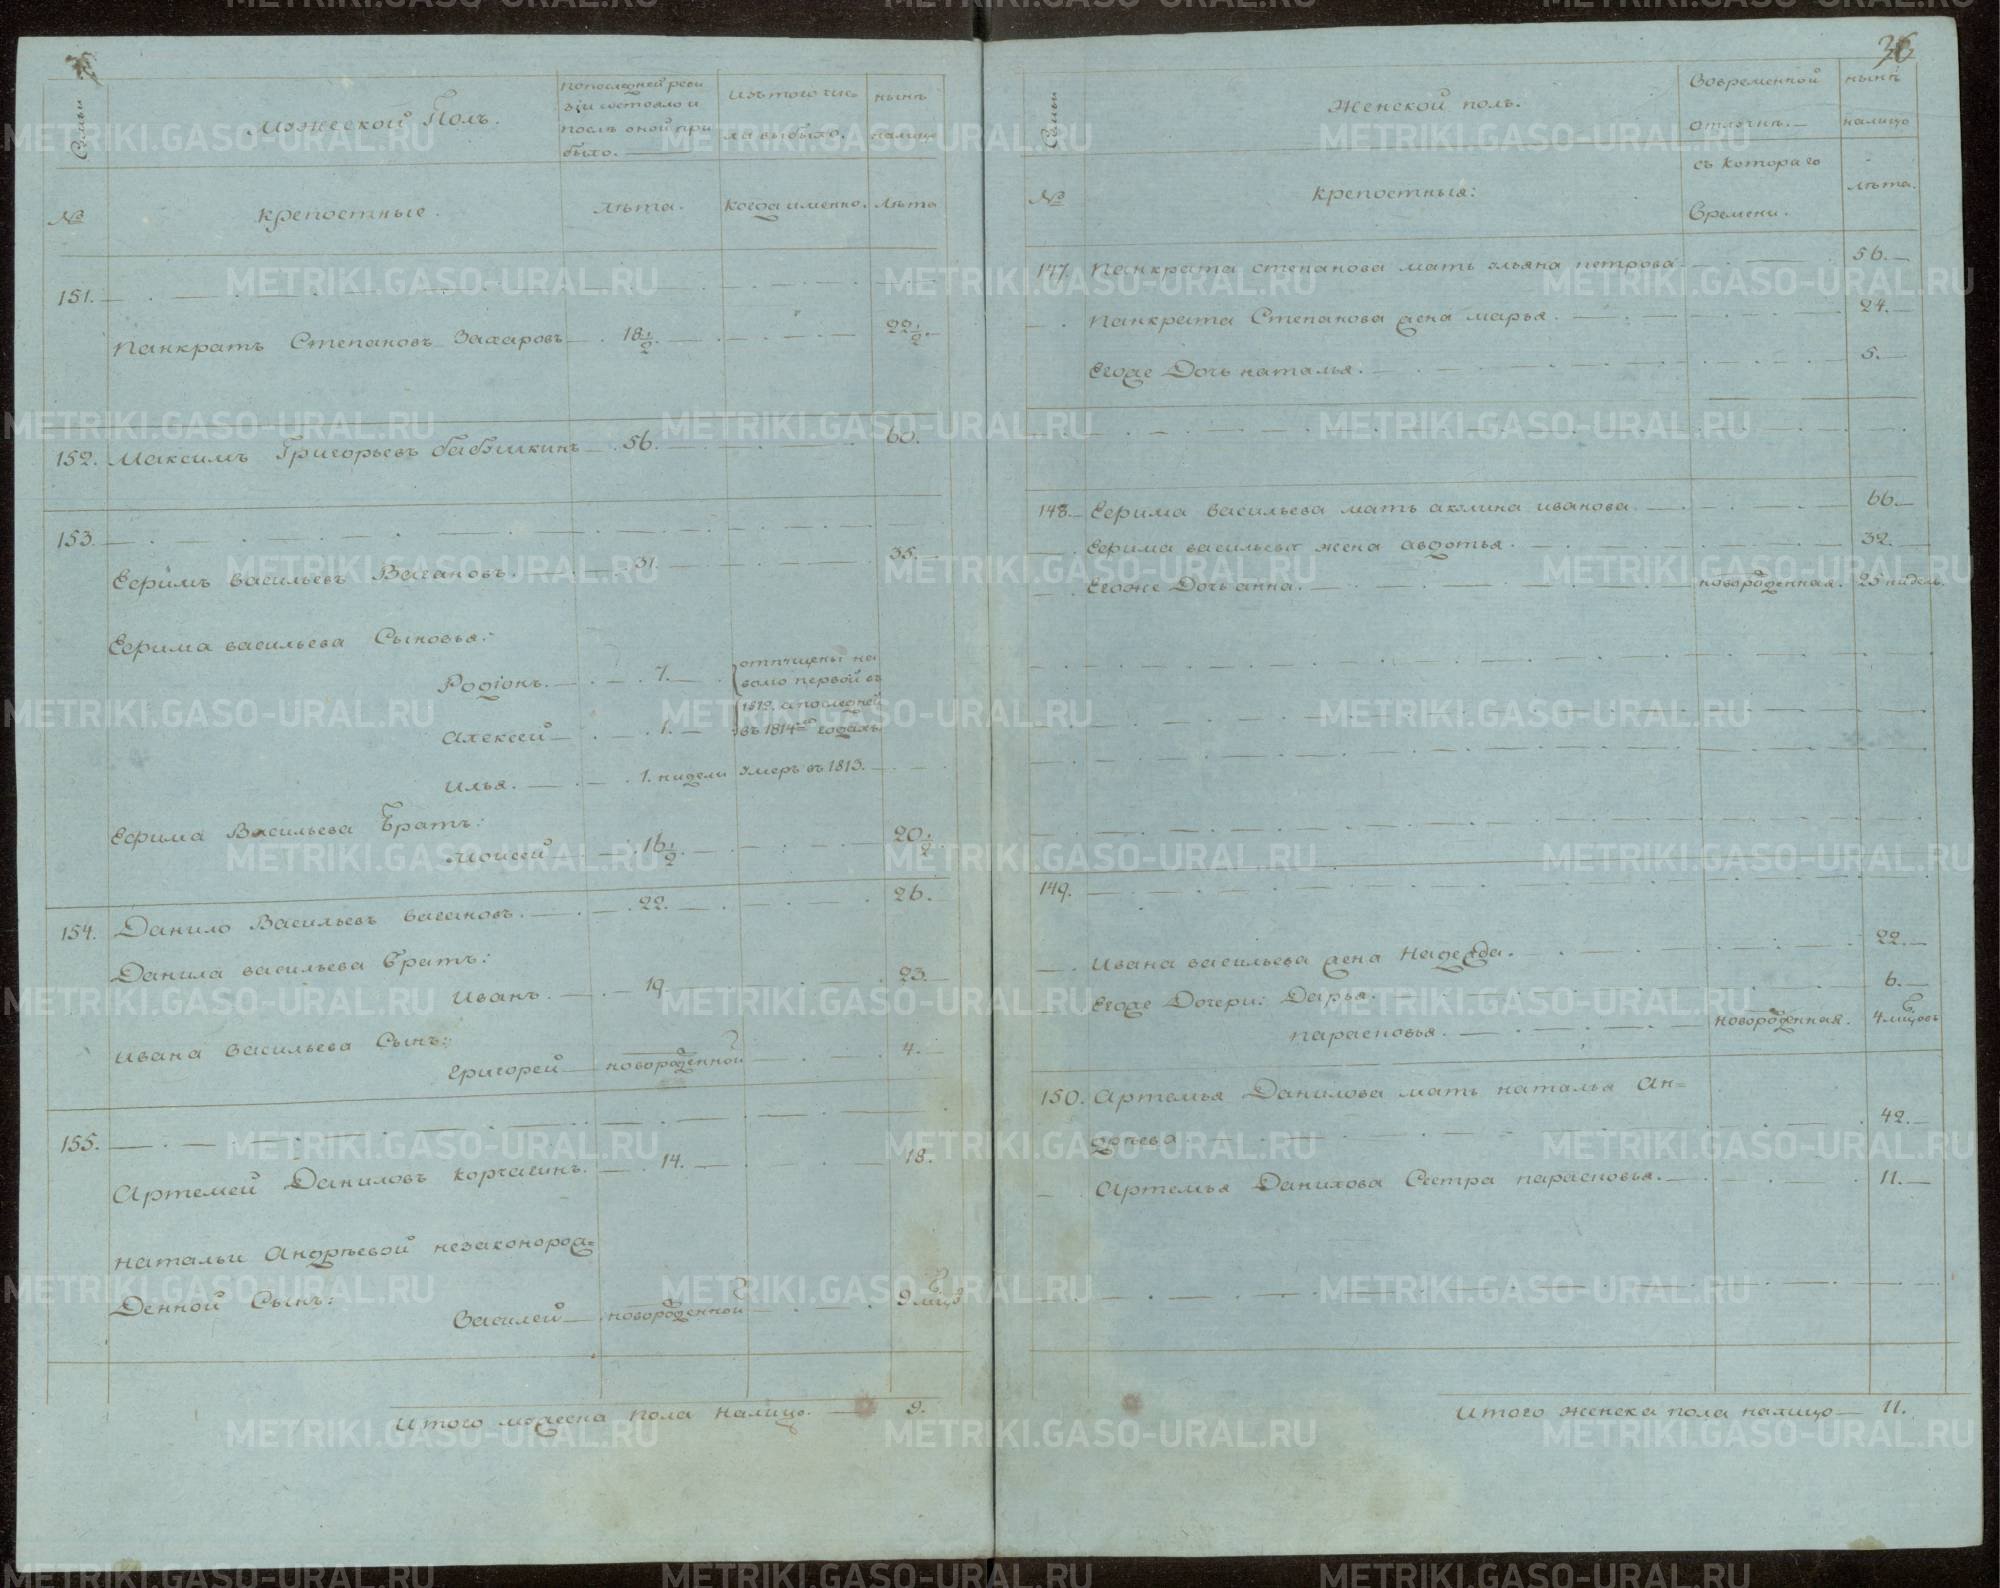 Семьи
Мужеской Полъ.
попоследней реви
зіи состояло и
послѣ оной при
было.
Изътого чис
ла выбыло.
нынѣ
налицо
№
крепостные.
лѣта.
когда именно.
лѣта
151.
Панкратъ Степановъ Захаровъ 18 1/2. 22 1/2.
152. Максимъ Григорьевъ бабушкинъ 56. 60.
153.
Ефримъ васильевъ Ваганов. 31. 35.
Ефрима васильева Сыновья:
Родіонъ. 7. отпущены на
волю первой въ
Алексей 1. 1812. а последней
въ 1814мъ годахъ
Илья. 1. нидели умеръ въ 1813.
Ефрима Васильева Братъ:
Моисей 16 1/2. 20 1/2.
154. Данило Васильевъ вагановъ. 22. 26.
Данила васильева братъ:
Иванъ. 19. 23.
Ивана васильева Сынъ:
Григорей новорожденной 4.
155.
Артемей Даниловъ корчагинъ. 14. 18.
натальи Андрѣевой незаконорож=
Денной Сынъ:
Василей новорожденной 9 мцовъ
Итого мужеска пола налицо. 9.
36
Семьи
Женской полъ.
Вовременной
отлучкѣ.
нынѣ
налицо
№
крепостныя:
съ котораго
Времени.
лѣта.
147. Панкрата степанова мать ульяна петрова 56.
Панкрата Степанова жена марья. 24.
Егоже Дочь наталья. 5.
148. Ефрима васильева мать акулина иванова. 66.
Ефрима васильева жена авдотья. 32.
Егоже Дочь анна. новорожденная. 25 нидель.
149.
Ивана васильева жена Надежда. 22.
Егоже Дочери: Дарья. 6.
парасковья. новорожденная. 4 мцовъ
150. Артемья Данилова мать наталья Ан=
дрѣева 42.
Артемья Данилова Сестра парасковья. 11.
Итого женска пола налицо 11.
METRIKI.GASO-URAL.RU